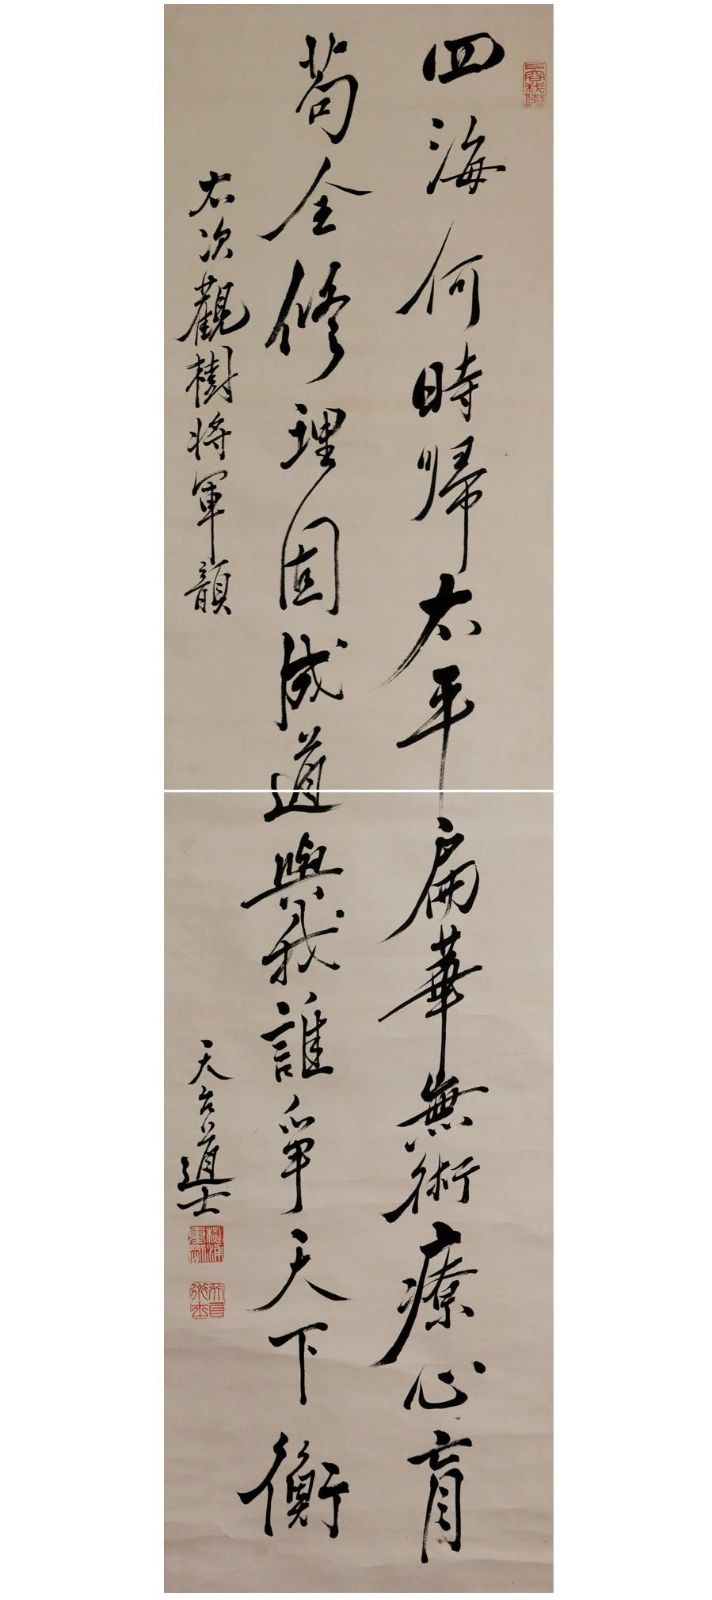 四海何時帰太平扁華無術療心肓
苟全修理固成道與我誰爭天下衡
右次觀樹将軍韻
天台道士
杉浦重剛